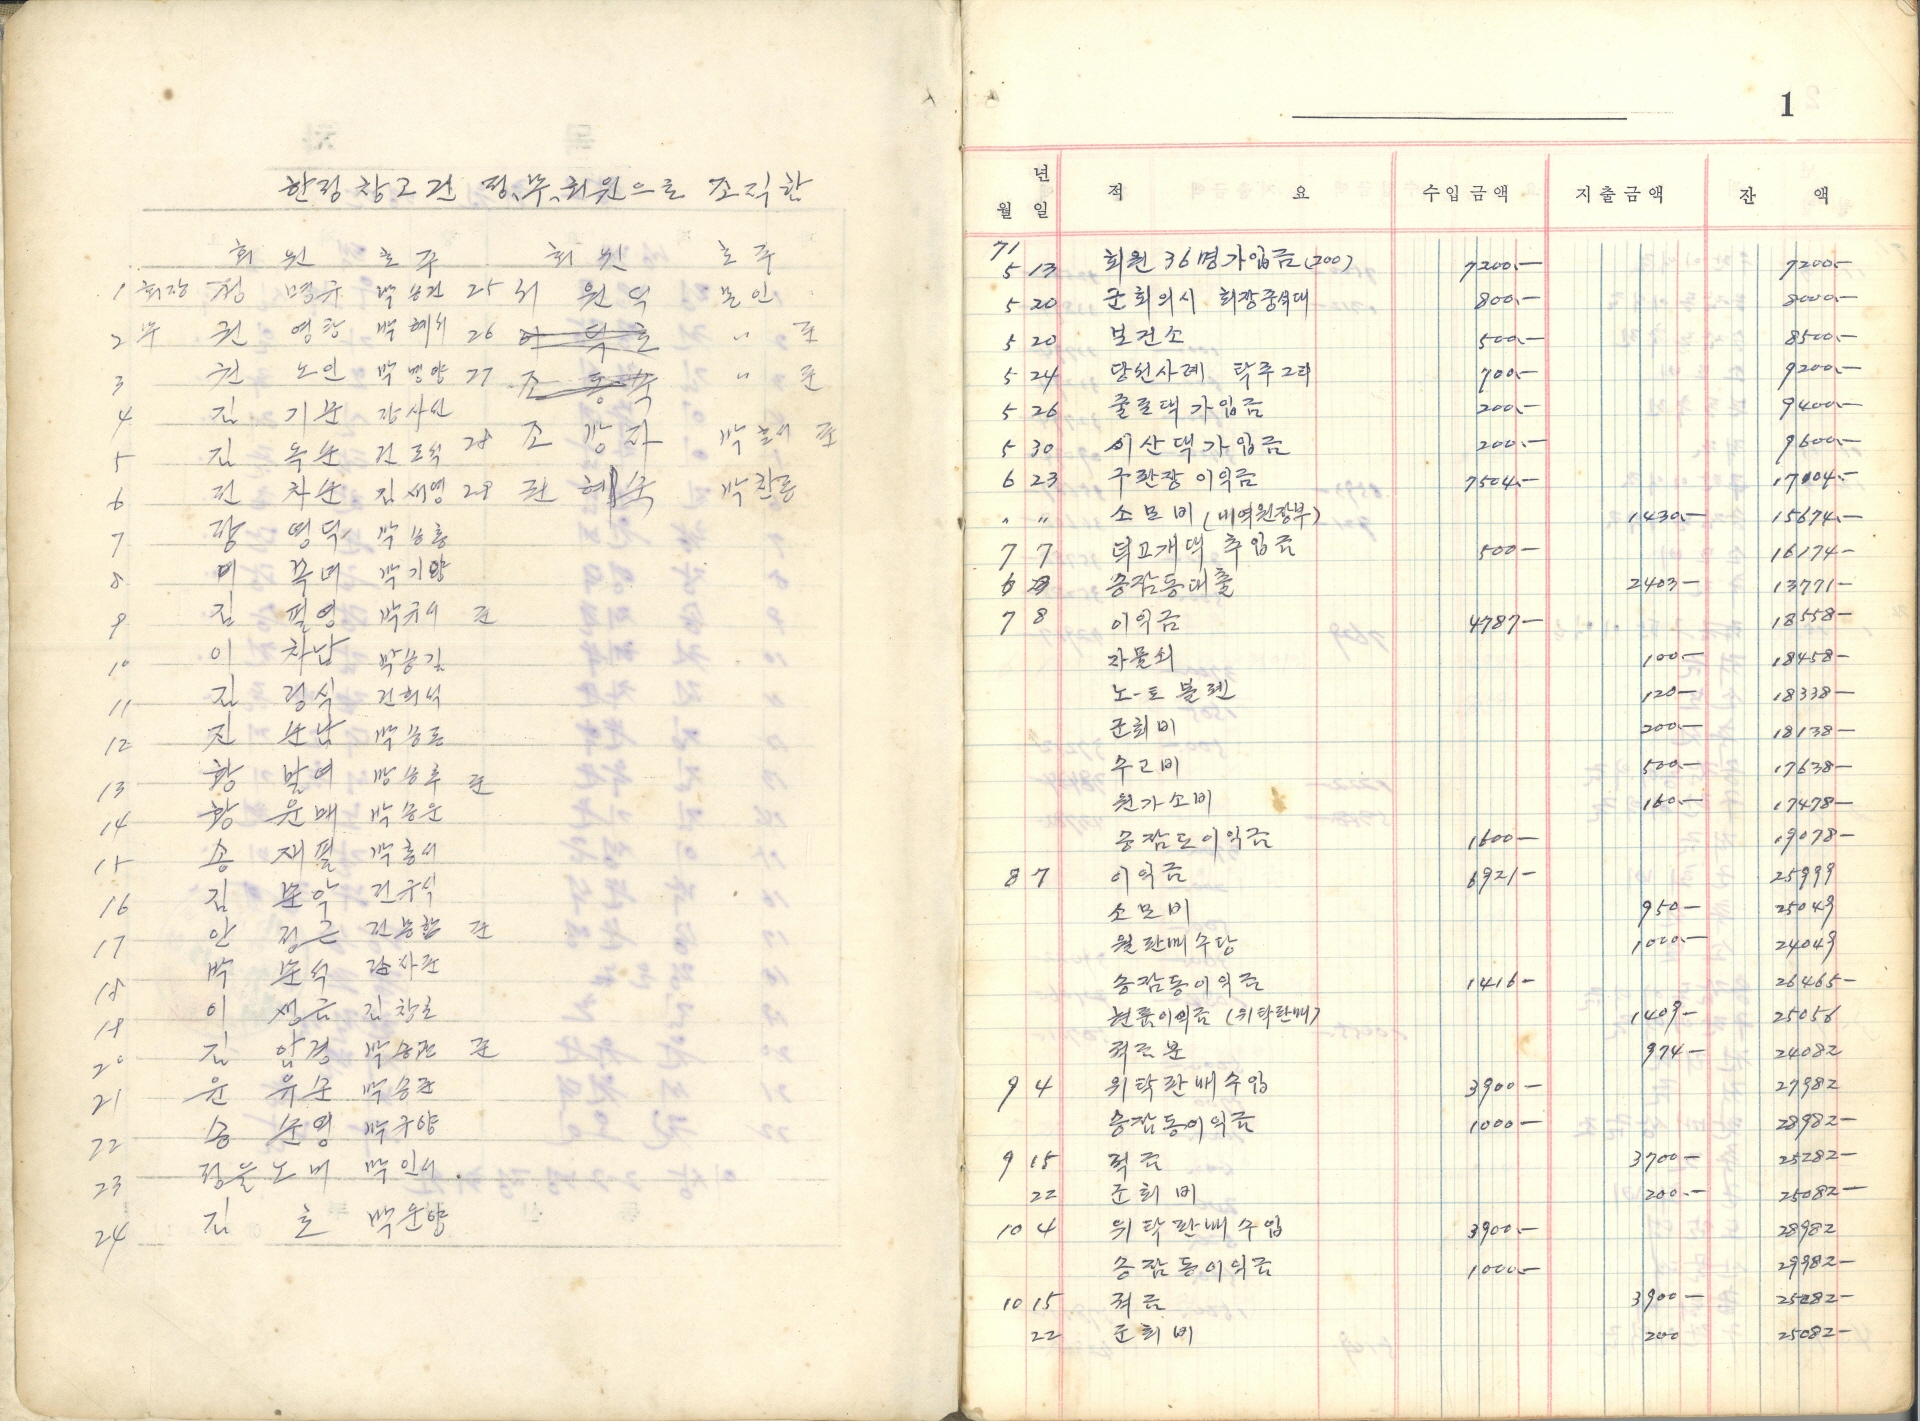 회원 호주 회원 호주
1 회장 정 명규 박승건 25 최 원덕 본인
2 부 권 영창 박혜서 26 이 덕호 〃 준
3 천 노인 박병양 27 조 동숙 〃 준
4 김 기분 장사인
5 김 옥순 28 조 깡자 준
6 전 차순 김세영 29 혜숙 박찬흥
7 장 명덕 박승흥
8 박기양
9 김 필영 박규서 준
10 이 차남 박승길
11 김 정식 건희석
12 진 순남 박승흥
13 황 말여 준
14 황 윤매 박승운
15 송 재필 박흥서
16 김 분악 건규식
17 안 정근 준
18 박 분석
19 이 생금 김창호
20 김 앞경 박승건 준
21 윤 유순 박승관
22 송 순영 박규양
23 정을노매 박인서
24 김 호 박운양
1
년
월 일 적 요 수입금액 지출금액 잔 액
71
5 13 회원 36명가입금(200) 7200.— 7200.—
5 20 군회의시 회장 800.— 8000.—
5 20 보건소 500.— 8500.—
5 24 당선사례 탁주2되 700.— 9200.—
5 26 줄포댁가입금 200.— 9400.—
5 30 이산댁가입금 200.— 9600.—
6 23 구판장 이익금 7504.— 17104.—
〃 〃 소모비 (내역원장부) 1430.— 15674.—
7 7 덕고개댁 추입금 500— 16174—
승잠동대출 2403— 13771—
7 8 이익금 4787— 18558—
자물쇠 100— 18458—
노-트 볼펜 120— 18338—
군회비 200.— 18138—
수고비 500.— 17638—
원가소비 160.— 17478—
승잠도이익금 1600— 19078—
8 7 이익금 6921— 25999
소모비 950— 25049
월판매수당 1000.— 24049
승잠동이익금 1416— 26465—
이익금 (위탁판매) 1409— 25056
974— 24082
9 4 위탁판매수입 3900— 27982
승잠동이익금 1000— 28982—
9 15 적금 3700— 25282—
22 군회비 200.— 25082—
10 4 위탁판매수입 3900.— 28982
승잠동이익금 1000.— 29982—
10 15 적금 3900— 25282—
22 군회비 200 25082—